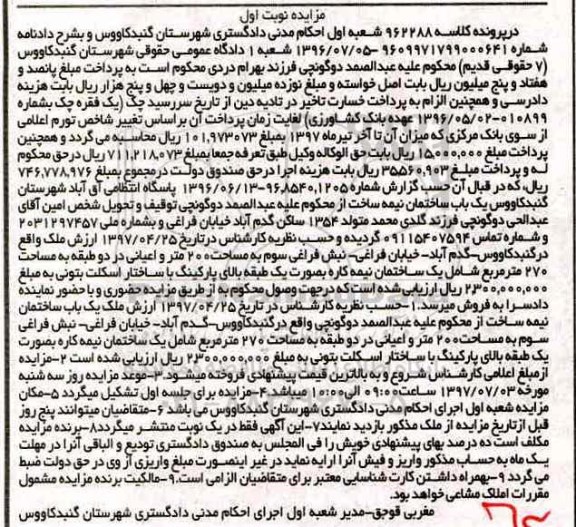 مزایده نوبت اول
درپرونده کلاسه ۹۶۲۲۸۸ شعبه اول احکام مدنی دادگستری شهرستان گنبدکاووس و بشرح دادنامه
شماره ۹۶۰۹۹۷۱۷۹۹۰۰۰۶۴۱ -۱۳۹۶/۰۷/۰۵ شعبه ۱ دادگاه عمومی حقوقی شهرستان گنبدکاووس
(۷ حقوقی قدیم) محکوم علیه عبدالصمد دوگونچی فرزند بهرام دردی محکوم است به پرداخت مبلغ پانصد و
هفتاد و پنج میلیون ریال بابت اصل خواسته و مبلغ نوزده میلیون و دویست و چهل و پنج هزار ریال بابت هزینه
دادرسی و همچنین الزام به پرداخت خسارت تاخیر در تادیه دین از تاریخ سررسید چک (یک فقره چک بشماره
۰۱۰۸۹۹-۱۳۹۶/۰۵/۰۲ عهده بانک کشاورزی) لغایت زمان پرداخت آن براساس تغییر شاخص تورم اعلامی
از سوی بانک مرکزی که میزان آن تا آخر تیرماه ۱۳۹۷ بمبلغ ۱۰۱,۹۷۳۰۷۳ ریال محاسبه می گردد و همچنین
پرداخت مبلغ ۱۵۰۰۰,۰۰۰ ریال بابت حق الوکاله وکیل طبق تعرفه جمعا بمبلغ ۷۱۱,۲۱۸,۰۷۳ ریال درحق محکوم
له و پرداخت مبلغ ۳۵۵۶۰,۹۰۳ ریال بابت هزینه اجرا درحق صندوق دولت درمجموع بمبلغ ۷۴۶,۷۷۸,۹۷۶
ریال، که در قبال آن حسب گزارش شماره ۹۶,۸۵۴۰,۱۲۰۵-۱۳۹۶/۰۶/۱۳ پاسگاه انتظامی آق آباد شهرستان
گنبدکاووس یک باب ساختمان نیمه ساخت از محکوم علیه عبدالصمد دوگونچی توقیف و تحویل شخص امین آقای
عبدالحی دوگونچی فرزند گلدی محمد متولد ۱۳۵۴ ساکن گدم آباد خیابان فراغی و بشماره ملی ۲۰۳۱۲۹۷۴۵۷
و شماره تماس ۰۹۱۱۵۴۰۷۵۹۴ گردیده و حسب نظریه کارشناس درتاریخ ۱۳۹۷/۰۴/۲۵ ارزش ملک واقع
درگنبدکاووس-گدم آباد- خیابان فراغی- نبش فراغی سوم به مساحت ۲۰۰ متر و اعیانی در دو طبقه به مساحت
۲۷۰ مترمربع شامل یک ساختمان نیمه کاره بصورت یک طبقه بالای پارکینگ با ساختار اسکلت بتونی به مبلغ
۲۳۰۰,۰۰۰,۰۰۰ ریال ارزیابی شده است که درجهت وصول محکوم به از طریق مزایده حضوری و با حضور نماینده
دادسرا به فروش میرسد. ۱-حسب نظریه کارشناس در تاریخ ۱۳۹۷/۰۴/۲۵ ارزش ملک یک باب ساختمان
نیمه ساخت از محکوم علیه عبدالصمد دوگونچی واقع درگنبدکاووس-گدم آباد- خیابان فراغی- نبش فراغی
سوم به مساحت ۲۰۰ متر و اعیانی در دو طبقه به مساحت ۲۷۰ مترمربع شامل یک ساختمان نیمه کاره بصورت
یک طبقه بالای پارکینگ با ساختار اسکلت بتونی به مبلغ ۲۳۰۰,۰۰۰,۰۰۰ ریال ارزیابی شده است ۲-مزایده
ازمبلغ اعلامی کارشناس شروع و به بالاترین قیمت پیشنهادی فروخته میشود.۳-موعد مزایده روز سه شنبه
مورخه ۱۳۹۷/۰۷/۰۳ ساعت ۰۹:۰۰ الی ۱۰:۰۰ میباشد۴-مزایده برای جلسه اول تشکیل میگردد ۵-مکان
مزایده شعبه اول اجرای احکام مدنی دادگستری شهرستان گنبدکاووس می باشد ۶-متقاضیان میتوانند پنج روز
قبل ازتاریخ مزایده از ملک مذکور بازدید نمایند۷-این آگهی فقط در یک نوبت منتشر میگردد۸-برنده مزایده
مکلف است ده درصد بهای پیشنهادی خویش را فی المجلس به صندوق دادگستری تودیع و الباقی آنرا در مهلت
یک ماه به حساب مذکور واریز و فیش آنرا ارایه نماید در غیر اینصورت مبلغ واریزی از وی در حق دولت ضبط
می گردد ۹-بهمراه داشتن کارت شناسایی معتبر برای متقاضیان الزامی است.۹-مالکیت برنده مزایده مشمول
مقررات املاک مشاعی خواهد بود.
مغربی قوجق-مدیر شعبه اول اجرای احکام مدنی دادگستری شهرستان گنبدکاووس